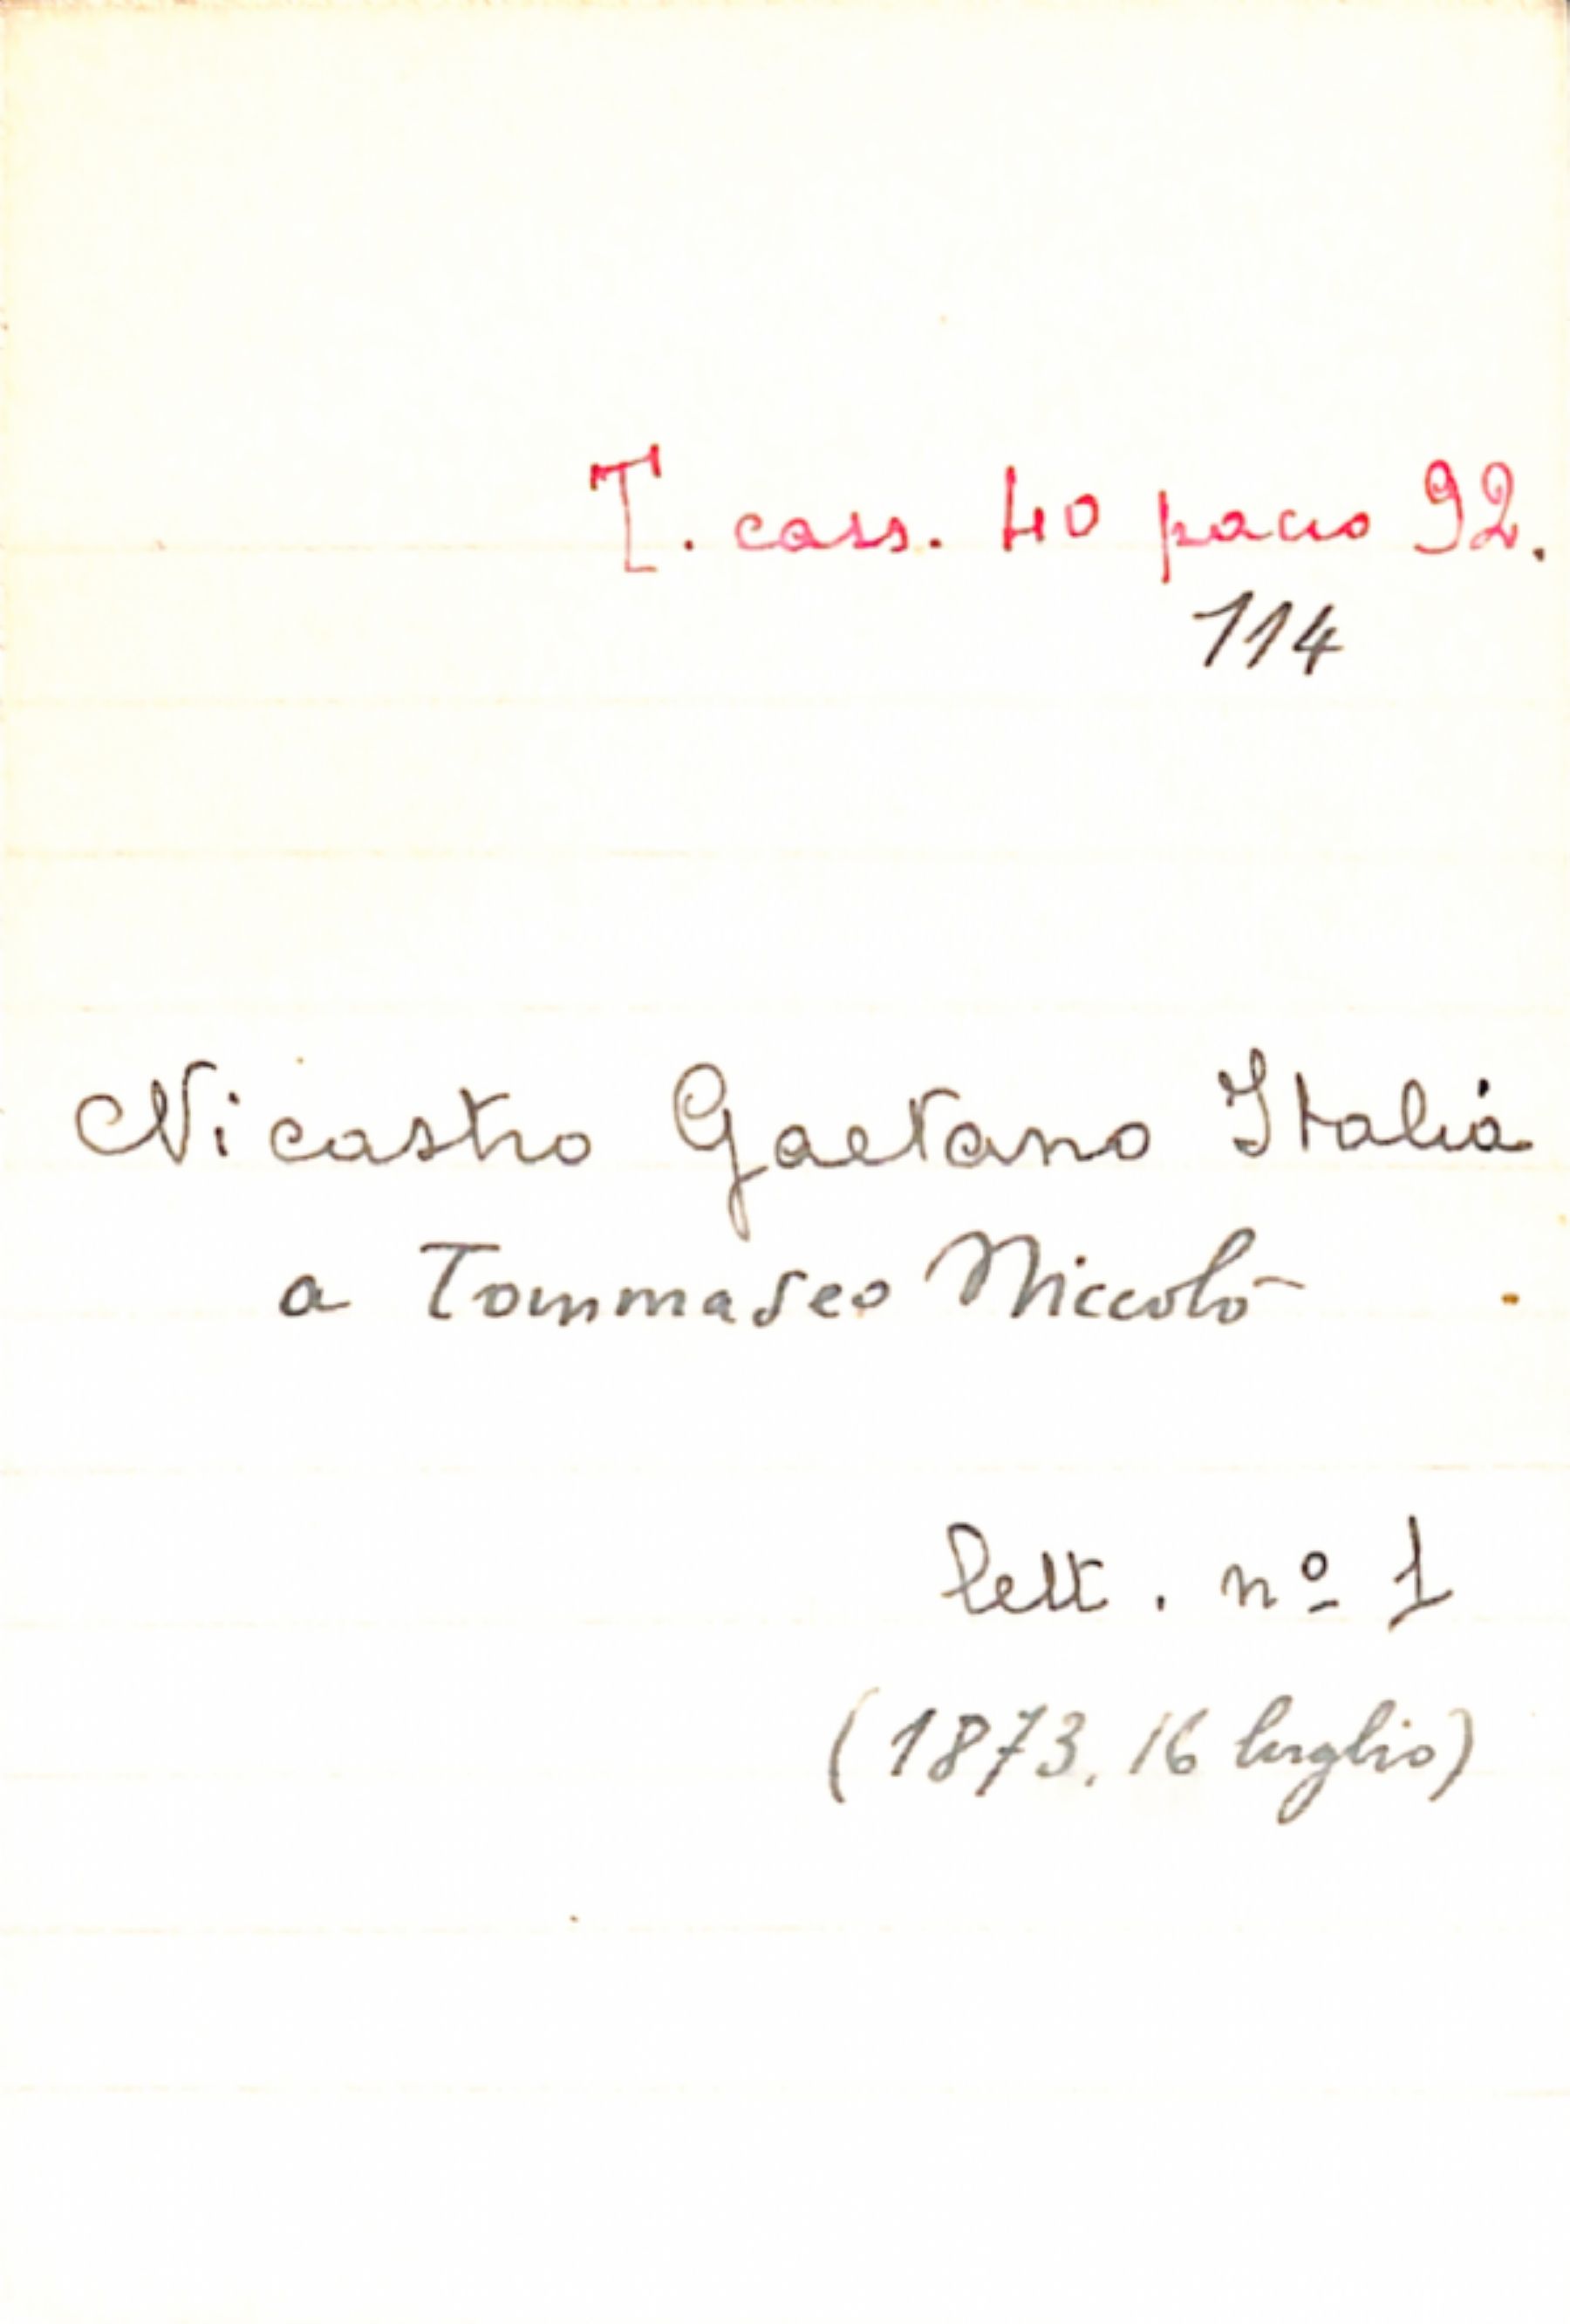 T. cass. 40 pacco 92.
114
Nicastro Gaetano Italia
a Tommaseo Niccolò
lett. nº 1
(1873, 16 luglio)